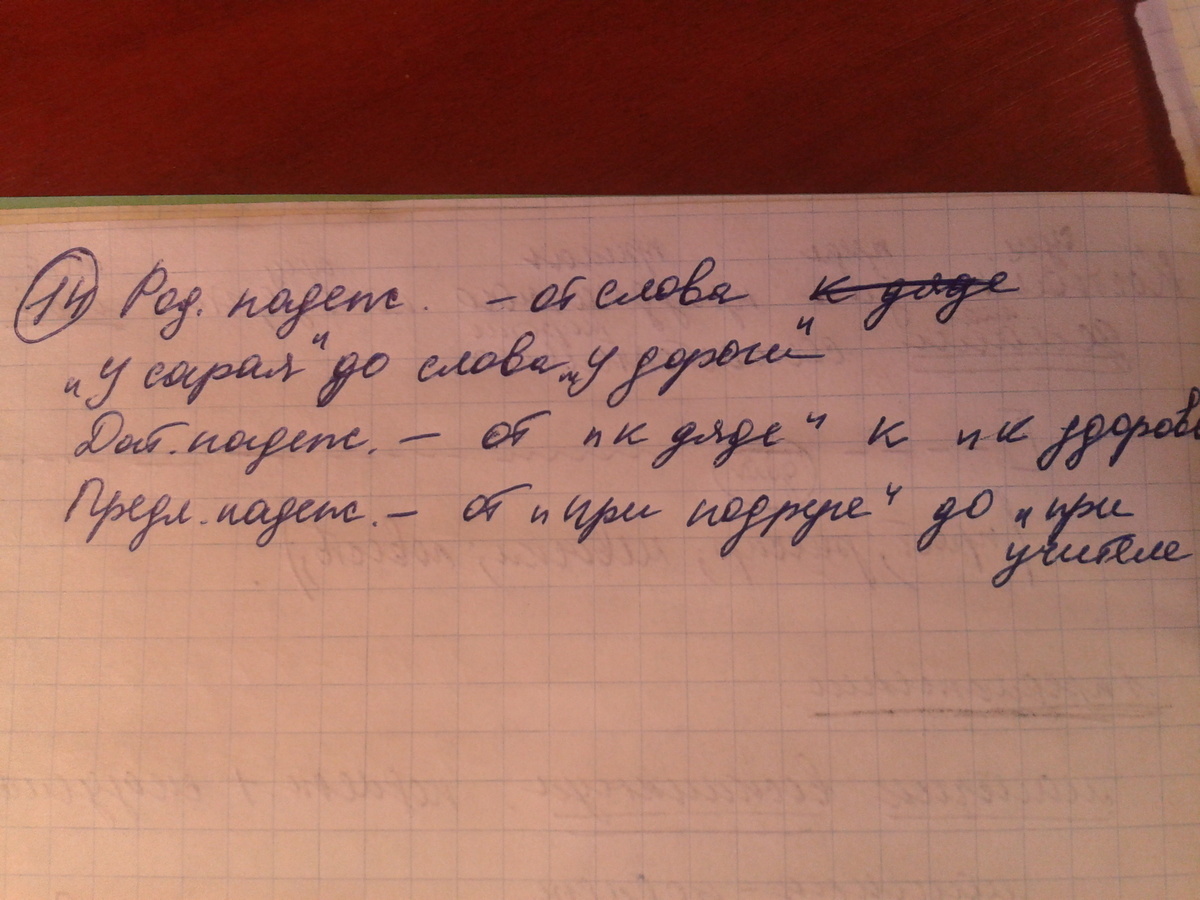 14 Род. падеж. – от слова к дяде
„У сарая" до слова „У дороги"
Дат. падеж. – от „к дяде" к „к здоровь
Предл. падеж. – от „при подруге" до „при
учителе